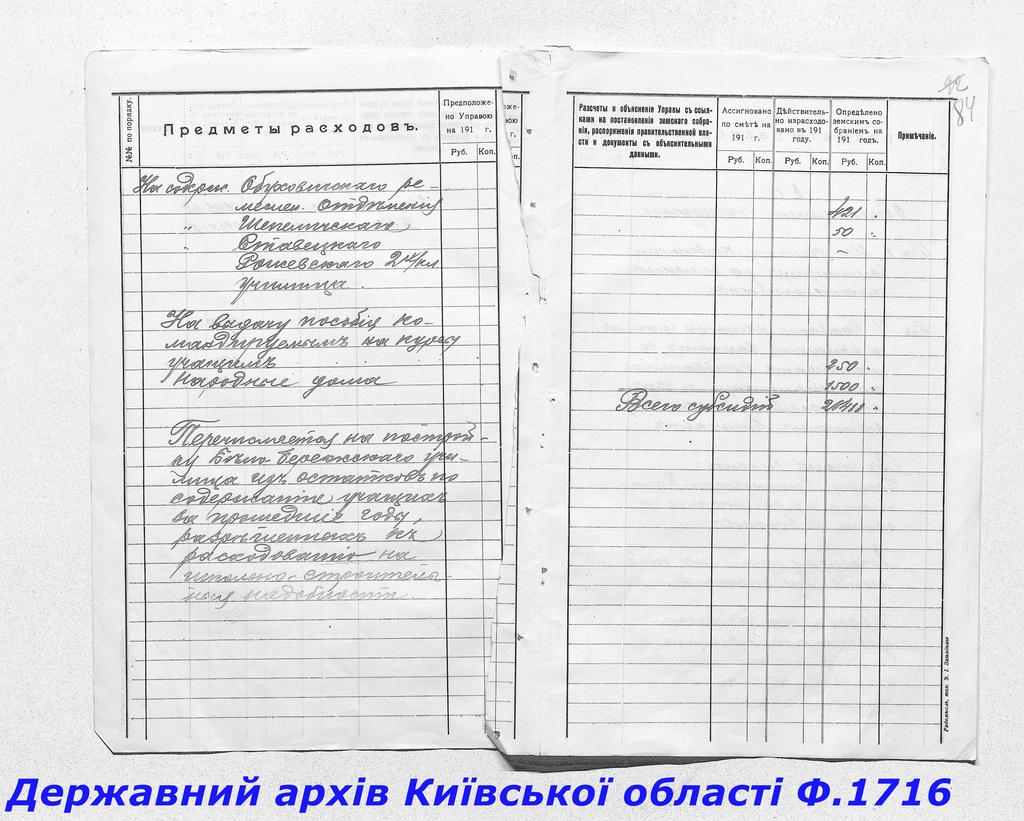 №№ по порядку.
Предметы расходовъ.
Предположе-
но Управою
на 191 г.
Руб. Коп.
На содерж. Обуховичскаго ре-
меслен. отдѣленія
" Шепеличскаго
" Ставецкаго
Рожевскаго 2хкл
училища.
На выдачу пособія ко-
мандируемымъ на курсы
учащимъ
Народные дома
Перечисляется на построй-
ку Бѣло-Бережскаго учи-
лища изъ остатковъ по
содержанію учащихъ
за прошедшіе годы,
разрѣшенныхъ къ
расходованію на
школьно-строитель-
ныя надобности.
оже-
вою
г.
Коп.
Разсчеты и объясненія Управы съ ссыл-
ками на постановленія земскаго собра-
нія, распоряженія правительственной вла-
сти и документы съ объяснительными
данными.
Ассигновано
по смѣтѣ на
191 г.
Руб. Коп.
Дѣйствитель-
но израсходо-
вано въ 191
году.
Руб. Коп.
Опредѣлено
земскимъ со-
браніемъ на
191 годъ.
Руб. Коп.
Примѣчаніе.
92
84
421 "
50 "
–
250 "
1500 "
Всего субсидій
Радомысль, тип.
Державний архів Київської області Ф.1716